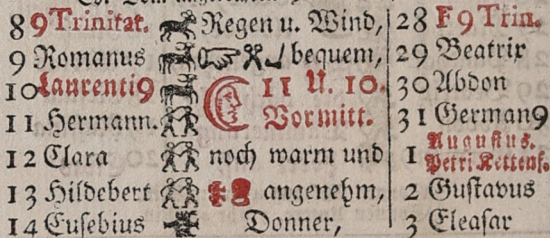 8 9 Trinitat. Regen u. Wind, 28 F 9 Trin.
9 Romanus bequem, 29 Beatrix
10 Laurenti9 11 U. 10. 30 Abdon
11 Hermann. Vormitt. 31 German9
12 Clara noch warm und 1 Augustus. Petri Kettenf.
13 Hildebert angenehm, 2 Gustavus
14 Eusebius Donner, 3 Eleasar